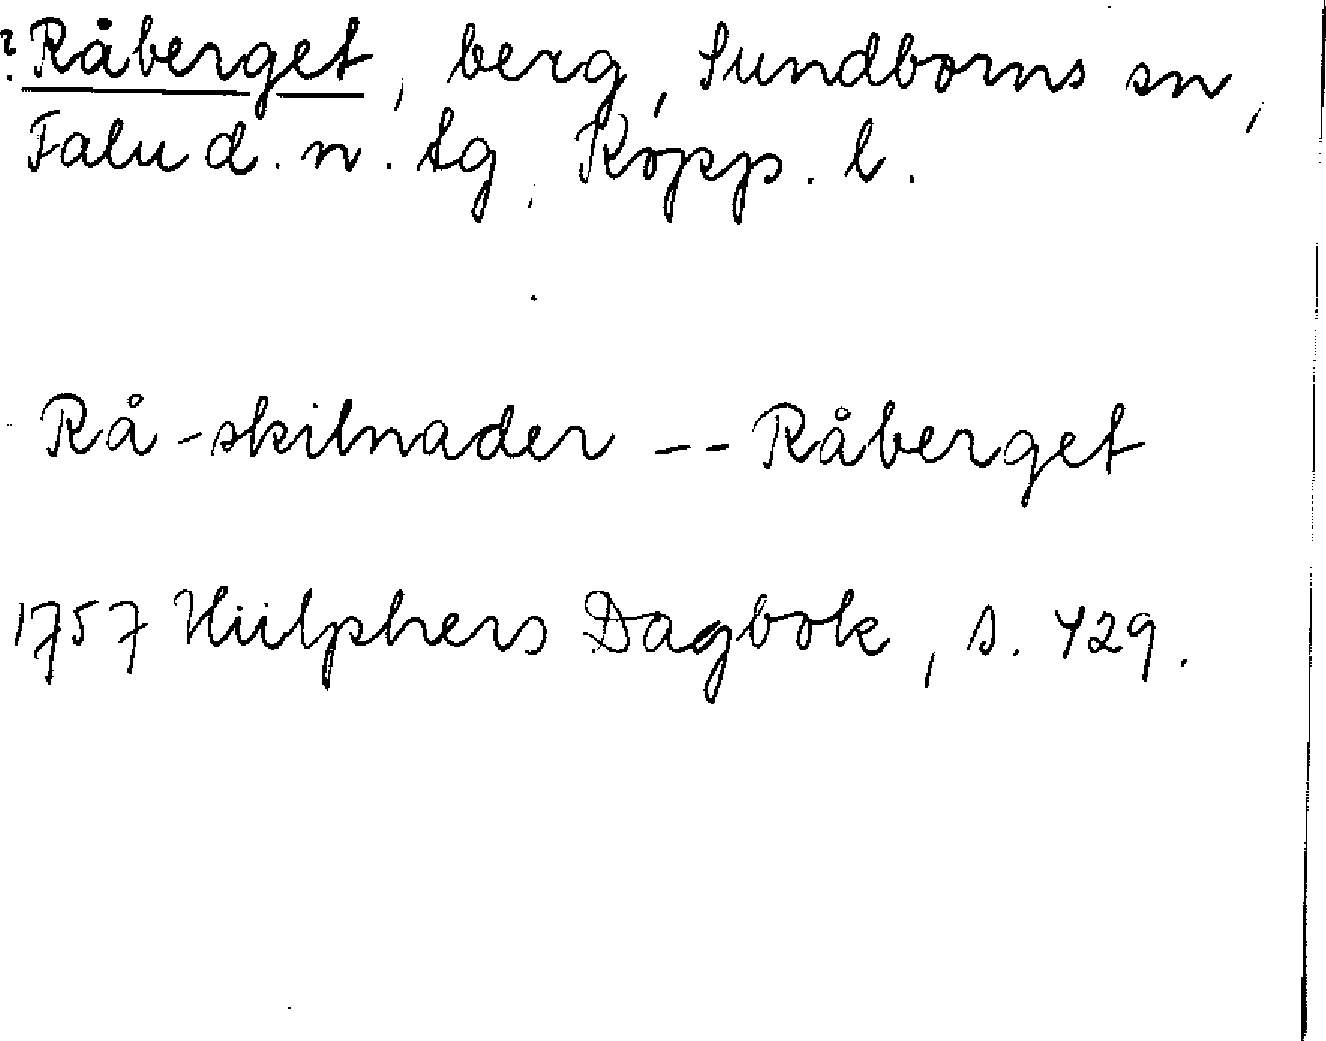 ? Råberget, berg, Sundborns sn,
Falu d. n. tg, Kopp. l.
Rå-skilnader -- Råberget
1757 Hülphers Dagbok, s. 429.